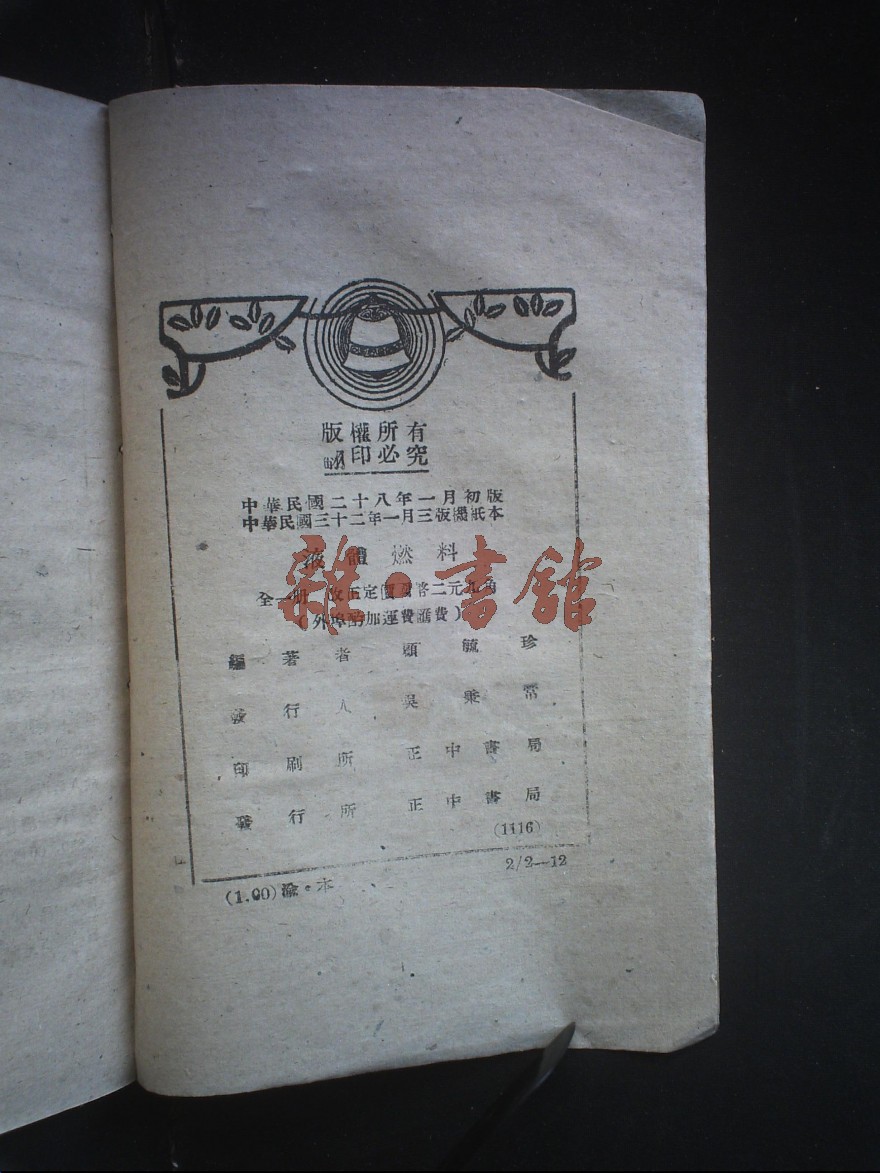 版權所有
翻印必究
中華民國二十八年一月初版
中華民國三十二年一月三版機紙本
液體燃料
雜·書館
全一冊 改正定價國幣二元九角
(外埠酌加運費匯費)
編著者 顧毓珍
發行人 吳秉常
印刷所 正中書局
發行所 正中書局
(1116)
2/2—12
(1.90)渝·本